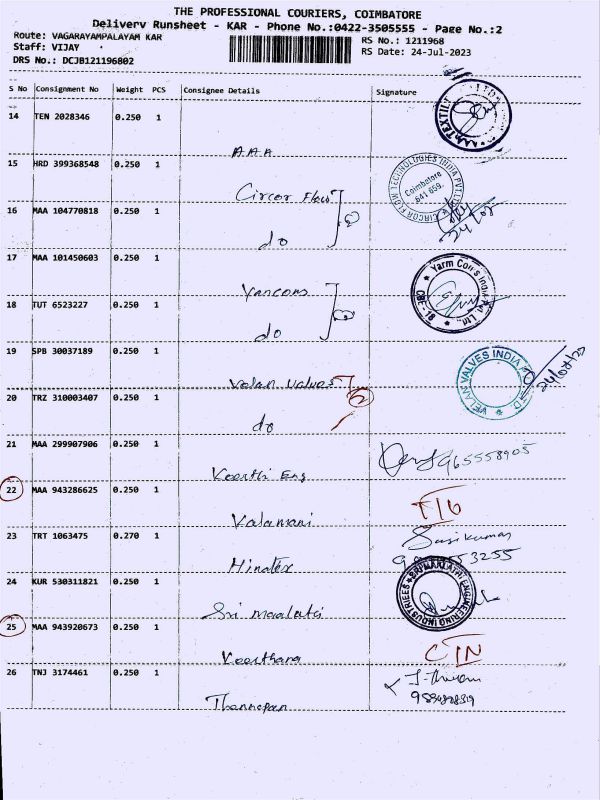 THE PROFESSIONAL COURIERS, COIMBATORE
Delivery Runsheet - KAR - Phone No.:0422-3505555 - Page No.:2
Route: VAGARAYAMPALAYAM KAR
RS No.: 1211968
Staff: VIJAY
RS Date: 24-Jul-2023
DRS No.: DCJB121196802
S No Consignment No Weight PCS Consignee Details Signature
14 TEN 2028346 0.250 1
AAA
15 HRD 399368548 0.250 1
Circor Flow
CIRCOR FLOW TECHNOLOGIES INDIA PVT LTD
Coimbatore
641 659.
16 MAA 104770818 0.250 1
do
24/07
17 MAA 101450603 0.250 1
Yarcoms
18 TUT 6523227 0.250 1
do
CBE-18
19 SPB 30037189 0.250 1
Velan Valves
VELAN VALVES INDIA
24/07/23
20 TRZ 310003407 0.250 1
do
21 MAA 299907906 0.250 1
Keerthi Eng
965558905
22 MAA 943286625 0.250 1
Valanmani
23 TRT 1063475 0.270 1
Hinatex
Sasikumar
24 KUR 530311821 0.250 1
Sri maalathi
SRI MAALATHI ENGINEERING INDUSTRIEES
25 MAA 943920673 0.250 1
Keerthana
26 TNJ 3174461 0.250 1
Thannepan